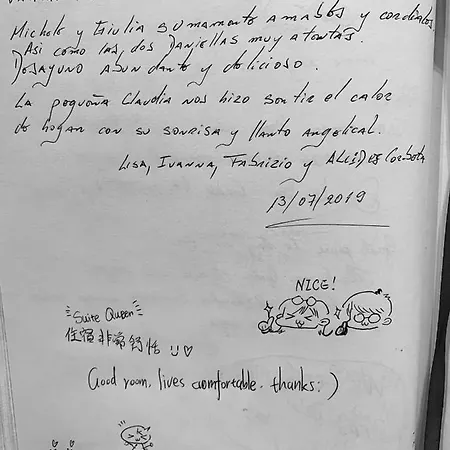 Michele y Giulia sumamente amables y cordiales
Asi como las dos Daniellas muy atentas.
Desayuno abundante y delicioso.
La pequeña Claudia nos hizo sentir el calor
de hogar con su sonrisa y llanto angelical.
Lisa, Ivanna, Fabrizio y
13/07/2019
NICE!
Suite Queen
住宿非常舒恬
Good room, lives comfortable. thanks:)